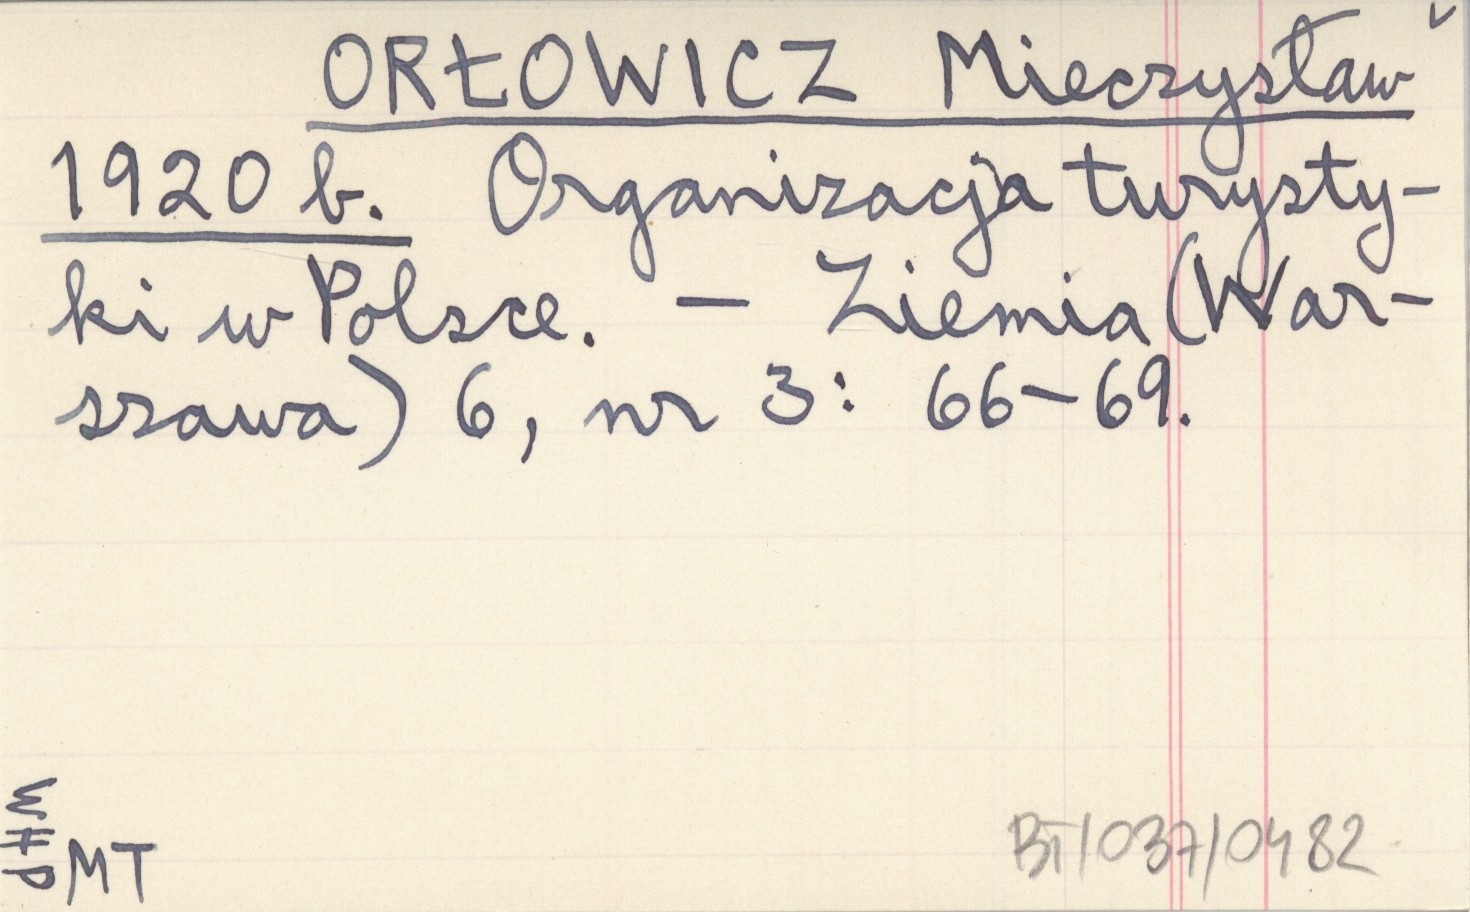 ORŁOWICZ Mieczysław
1920 b. Organizacja turysty-
ki w Polsce. — Ziemia (War-
szawa) 6, nr 3: 66-69.
MT
BT/037/0482